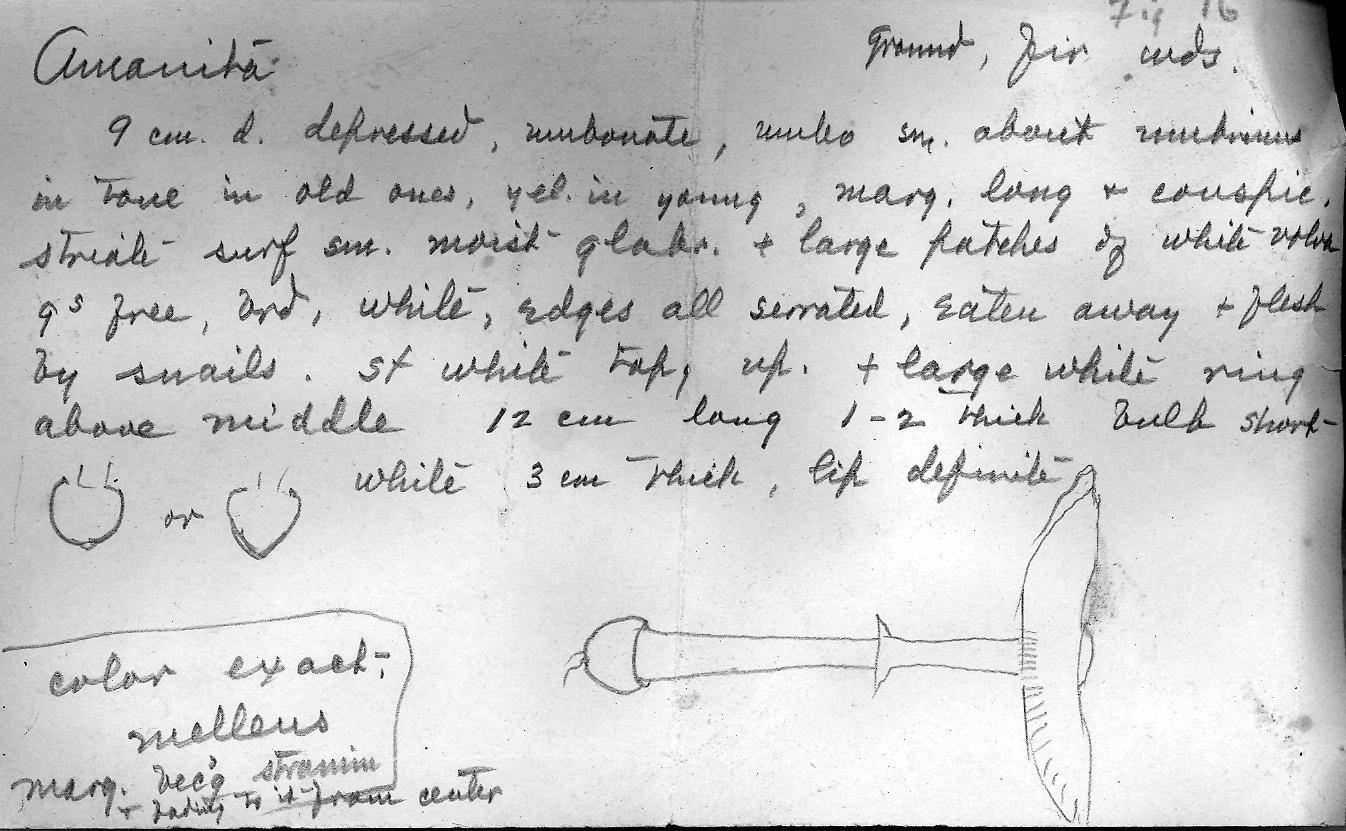 Fig 16
Amanita
Ground, fir wds.
9 cm. d. depressed, umbonate, umbo sm. about umbrinus
in tone in old ones, yel. in young, marg. long + conspic.
striate surf sm. moist glabr. + large patches of white volva
gs free, brd, white, edges all serrated, eaten away + flesh
by snails. st white top, up. + large white ring
above middle 12 cm long 1-2 thick bulb short
white 3 cm thick, lip definite
or
color exact,
melleus
marg. bec'g stramin
+ fading to it from center